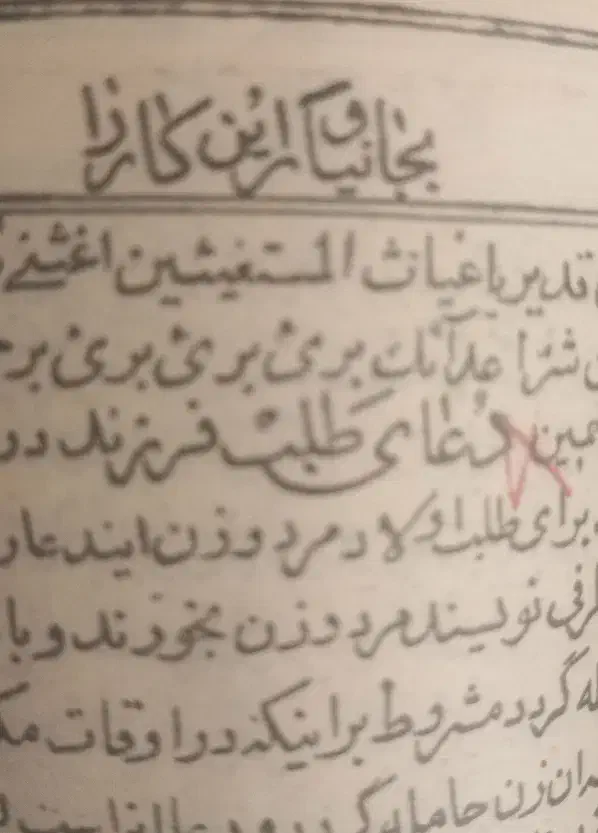 بجانیاور این کار را
قدیر یا غیاث المستغیثین اغثنی
شر اعدآئک بریئ بریئ بریئ بر
مبین دعای طلب فرزند در
برای طلب اولاد مرد و زن ایندعا ر
نویسند مرد و زن بخورند و با
گردد مشروط براینکه در اوقات مک
زن حامله گردد